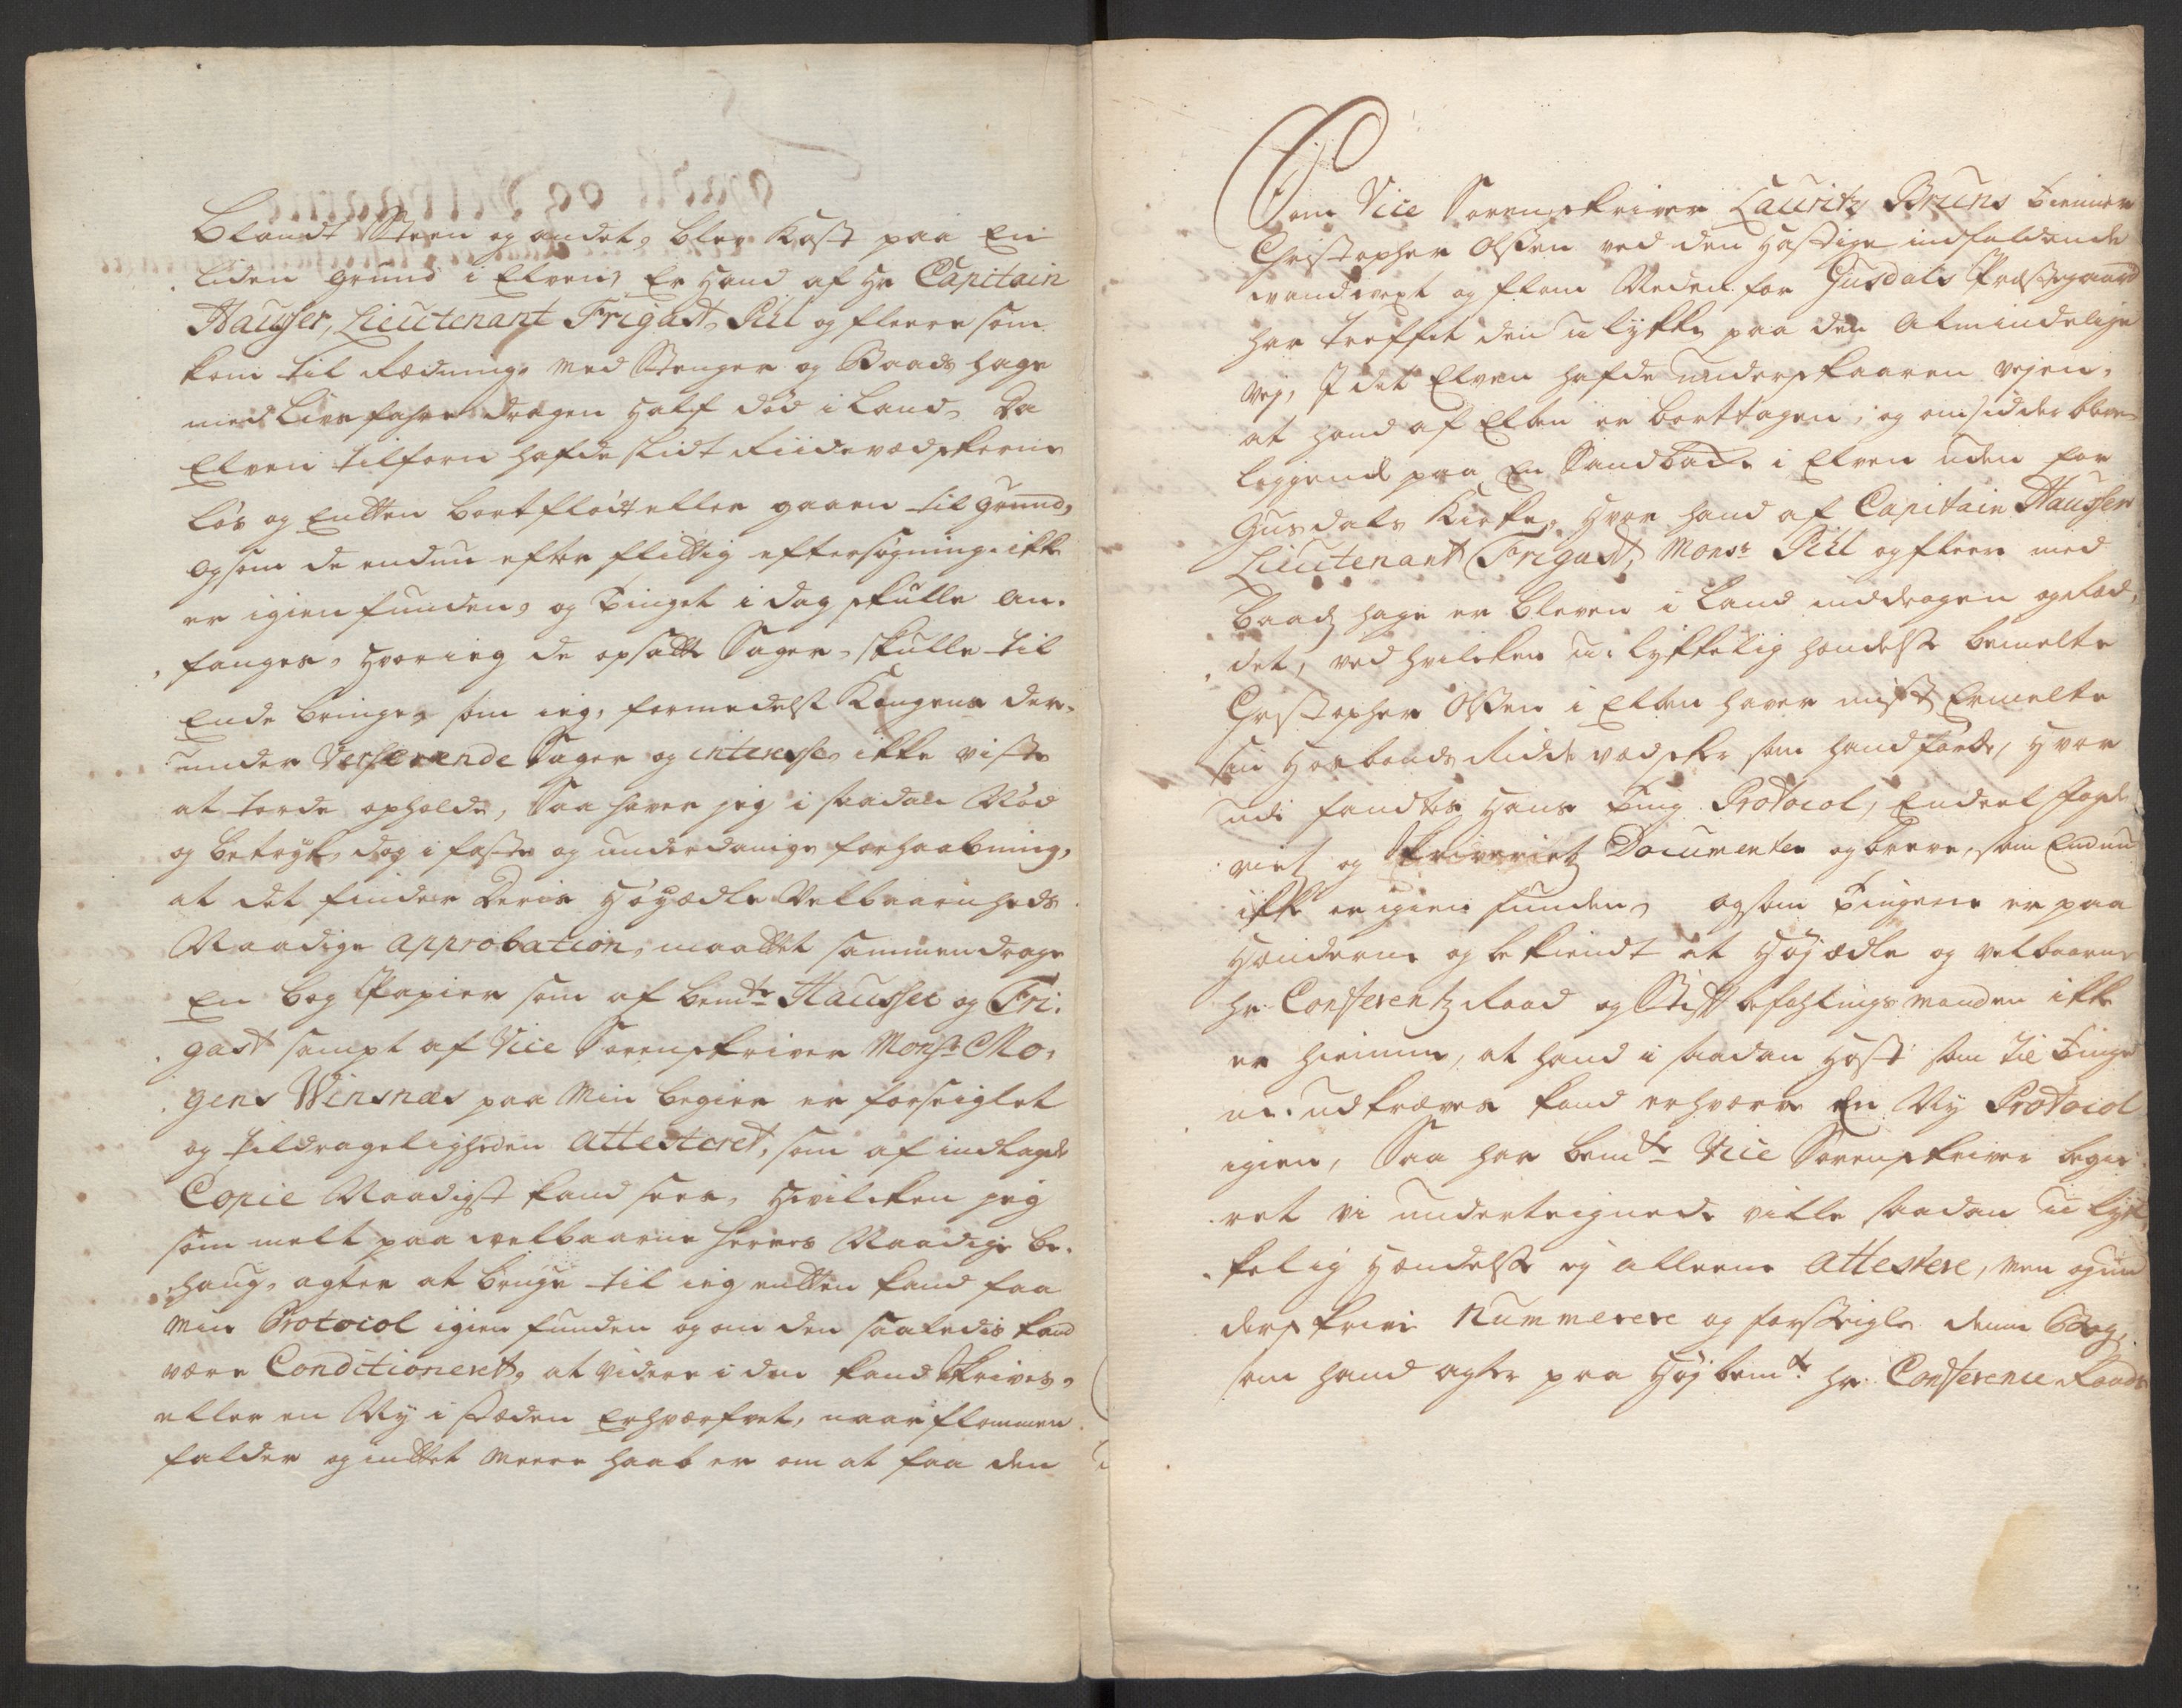 Blandt Steen og andet, blev kast paa En
liden grund i Elven, Er hand af Hr Capitain
Hausser, Lieutenant Frigast, Pihl og fleere som
kom til Redning, med Stenger og Baads hage
med Livs fahre dragen half död i Land, Da
Elven tilforn hafde slidt Riidevædskerne
lös og Endten bortflöit eller gaaen til grund,
og som de endnu efter flittig eftersögning ikke
er igien funden, og Tinget i dag skulle an-
fanges, hvor ieg de opsatte Sager skulle til
Ende bringe, som ieg, formedelst Kongens der-
under Verserende Sager og interesse, ikke viste
at torde opholde, Saa haver jeg i saadan Nöd
og betryk, dog i faste og underdanige forhaabning,
at det finder Deris Höyædle Velbaarenheds
Naadige approbation, maattet sammendrage
En bog Papier som af bemte Hausser og Fri-
gast sampt af Vice Sorenskriver Monsr Mo-
gens Winsnæs paa Min begier er forseiglet
og tildrageligheden attesteret, som af indlagde
Copie Naadigst kand sees, hvilcken jeg
som melt paa velbaarne Herres Naadige be-
hag, agter at bruge til ieg endten kand faa
min Protocol igien funden og om den saaledis kand
være Conditioneret, at videre i den kand skrives,
eller en Ny i steden Erhvervet, naar flommen
falder og intet meere haab er om at faa den
Som Vice Sorenskriver Lauritz Bruns tienner
Christopher Olsen ved den hastige indfaldende
vandvext og flom Neden for Gusdals Præstegaard
har treffet den ulykke paa den Almindelige
vej, I det Elven hafde underskaaren vejen,
at hand af Elven er borttagen, og omsidder bleve
liggende paa En Sandbache i Elven uden for
Gusdals Kirke, hvor hand af Capitain Hausser
Lieutenant Frigast, Monsr Pihl og fleere med
baads hage er bleven i Land inddragen og Red-
det, ved hvilcken u-lykkelig hændelse bemelte
Christopher Olsen i Elven haver mist Ermelte
sin Hosbonds Ridde vædsker som hand förte, hvor
udi fandtes hans Ting Protocol, Endeel fogde
riet og Skriveriet Documenter og breve, som Endnu
ikke er igien funden, og som Tingene er paa
hænderne og bekiendt at höyædle og velbaarne
hr. Conferentz Raad og Stiftbefahlingsmanden ikke
er hiemme, at hand i saadan hast som til Tinge-
ne udkræves kand erhverve En Ny Protocol
igien, Saa har bemte Vice Sorenskriver begie-
ret vi underteignede ville saadan ulyk-
kelig hændelse ej alleene attestere, men og un
derskrive Nummerere og forseigle denne Bog,
som hand agter paa Höjbemte hr. Conference Raads